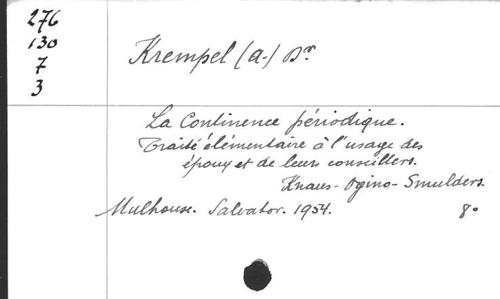 276
130
7
3
Krempel (A.) Dr
La Continence périodique.
Traité élémentaire à l'usage des
époux et de leurs conseillers.
Knaus-Ogino-Smulders.
Mulhouse. Salvator. 1954. 8°